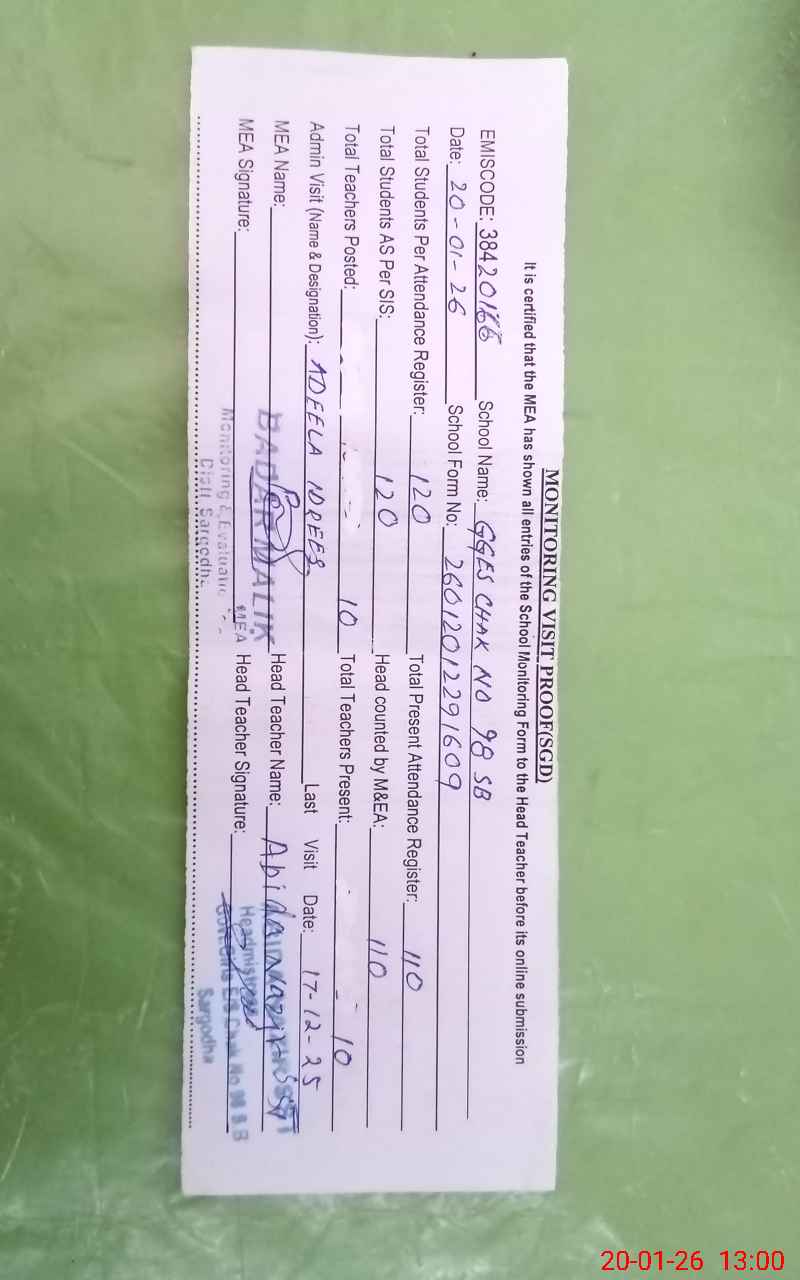 MONITORING VISIT PROOF(SGD)
It is certified that the MEA has shown all entries of the School Monitoring Form to the Head Teacher before its online submission
EMISCODE: 38420166 School Name: GGES CHAK NO 98 SB
Date: 20-01-26 School Form No: 26012012291609
Total Students Per Attendance Register: 120 Total Present Attendance Register: 110
Total Students AS Per SIS: 120 Head counted by M&EA: 110
Total Teachers Posted: 10 Total Teachers Present: 10
Admin Visit (Name & Designation): ADEELA IDREES Last Visit Date: 17-12-25
MEA Name: BADAR MALIK Head Teacher Name: Abida
MEA Signature: MEA Head Teacher Signature: Headmistress
Monitoring & Evaluation
Distt. Sargodha
E/S Chak No 98 S B
Sargodha
20-01-26 13:00